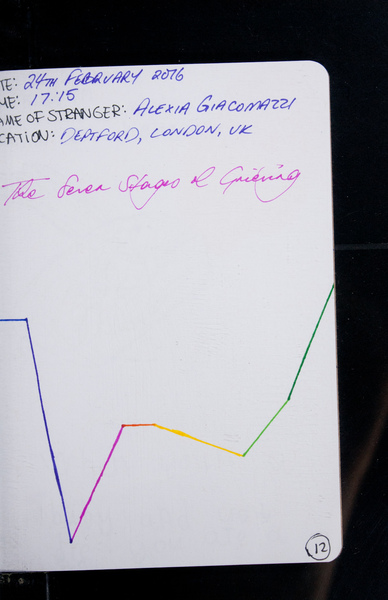 TE: 24TH FEBRUARY 2016
ME: 17:15
AME OF STRANGER: ALEXIA GIACOMAZZI
CATION: DEPTFORD, LONDON, UK
The Seven Stages of Grieving
12